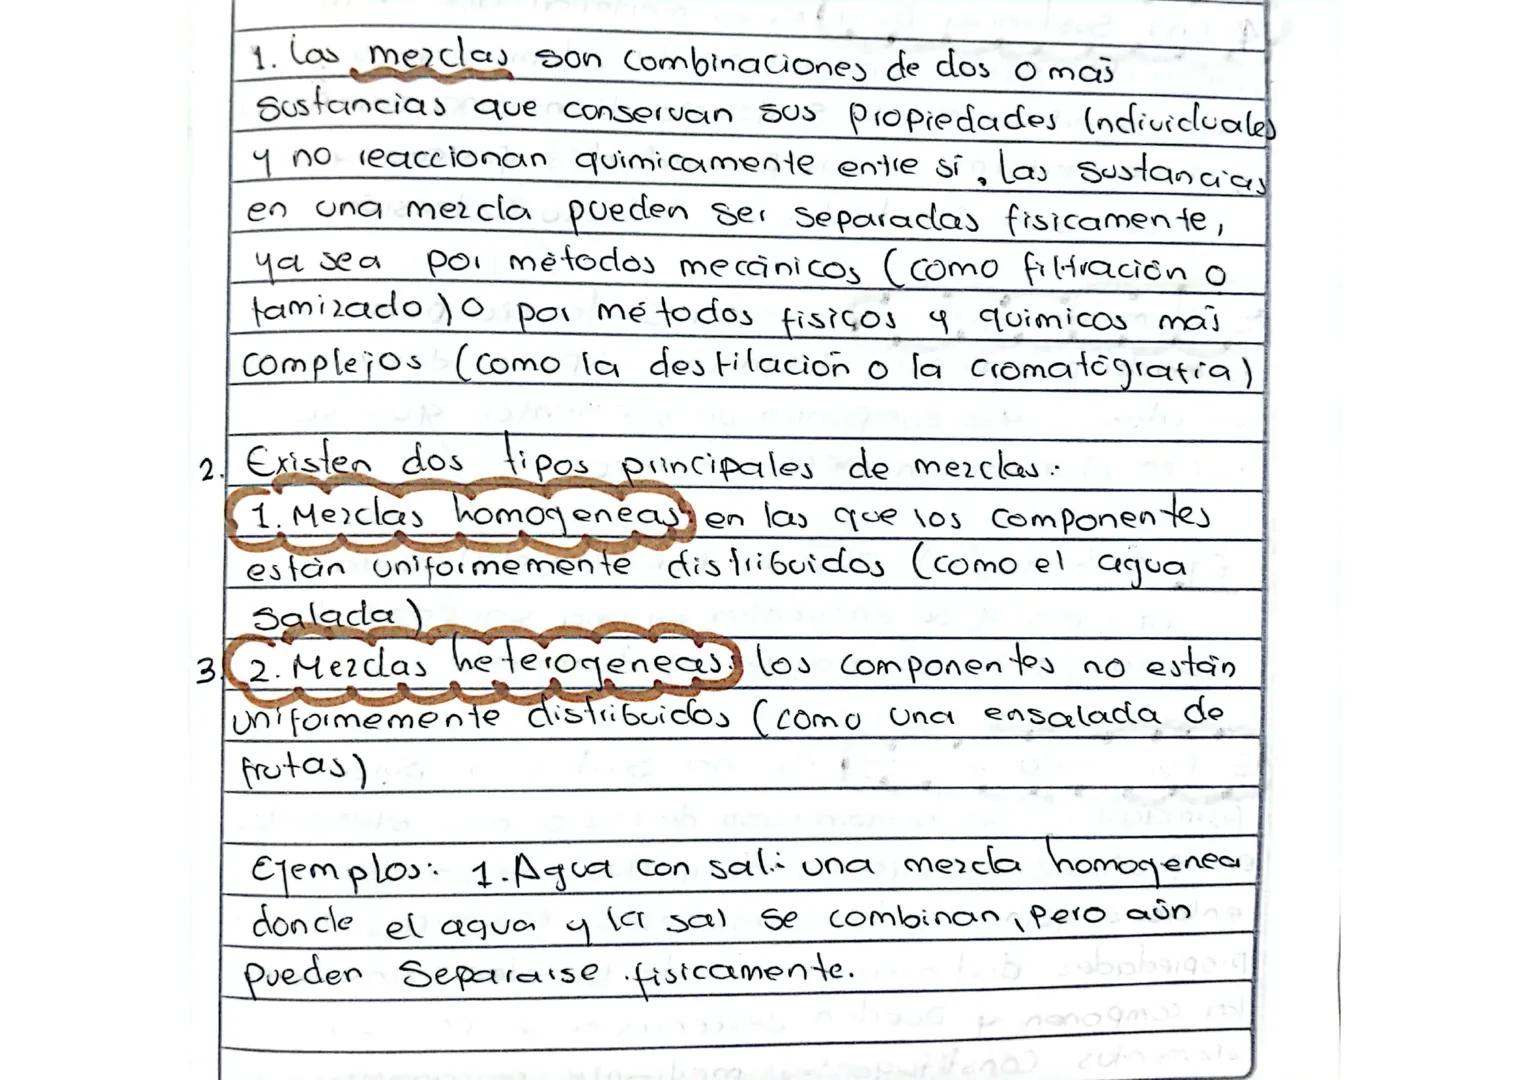 1. Las mezclas son combinaciones de dos o más
sustancias que conservan sus propiedades individuales
y no reaccionan quimicamente entre sí, las sustancias
en una mezcla pueden ser separadas fisicamente,
ya sea por métodos mecánicos (como filtración o
tamizado) o por métodos fisicos y quimicos más
complejos (como la destilación o la cromatógrafia)
2. Existen dos tipos principales de mezclas:
1. Mezclas homogeneas) en las que los componentes
están uniformemente distribuidos (como el agua
salada)
3 2. Mezclas heterogeneas: los componentes no están
uniformemente distribuidos (como una ensalada de
frutas)
Ejemplos: 1. Agua con sal: una mezcla homogenea
donde el agua y la sal se combinan, pero aún
pueden separarse fisicamente.